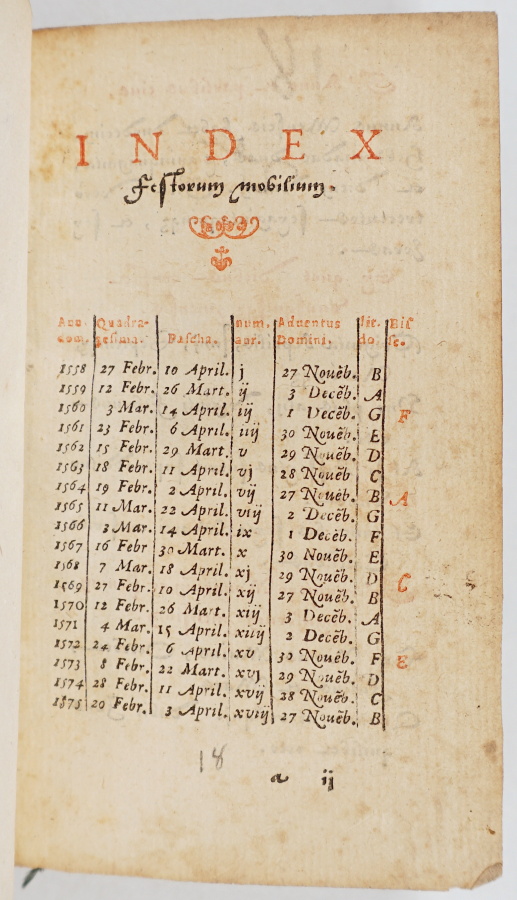 INDEX
Festorum mobilium.
Ann. Quadra- num. Aduentus lit. Bis
dom. gesima. Pascha. aur. Domini. do. se.
1558 27 Febr. 10 April. j 27 Nouẽb. B
1559 12 Febr. 26 Mart. ij 3 Decẽb. A
1560 3 Mar. 14 April. iij 1 Decẽb. G F
1561 23 Febr. 6 April. iiij 30 Nouẽb. E
1562 15 Febr. 29 Mart. v 29 Nouẽb. D
1563 18 Febr. 11 April. vj 28 Nouẽb C
1564 19 Febr. 2 April. vij 27 Nouẽb. B A
1565 11 Mar. 22 April. viij 2 Decẽb. G
1566 3 Mar. 14 April. ix 1 Decẽb. F
1567 16 Febr 30 Mart. x 30 Nouẽb. E
1568 7 Mar. 18 April. xj 29 Nouẽb. D C
1569 27 Febr. 10 April. xij 27 Nouẽb. B
1570 12 Febr. 26 Mart. xiij 3 Decẽb. A
1571 4 Mar. 15 April. xiiij 2 Decẽb. G
1572 24 Febr. 6 April. xv 30 Nouẽb. F E
1573 8 Febr. 22 Mart. xvj 29 Nouẽb. D
1574 28 Febr. 11 April. xvij 28 Nouẽb. C
1575 20 Febr. 3 April. xviij 27 Nouẽb. B
18
a ij